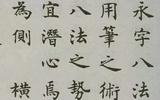 永字八法
用筆之術
八法之勢
宜潛心焉
為側 橫